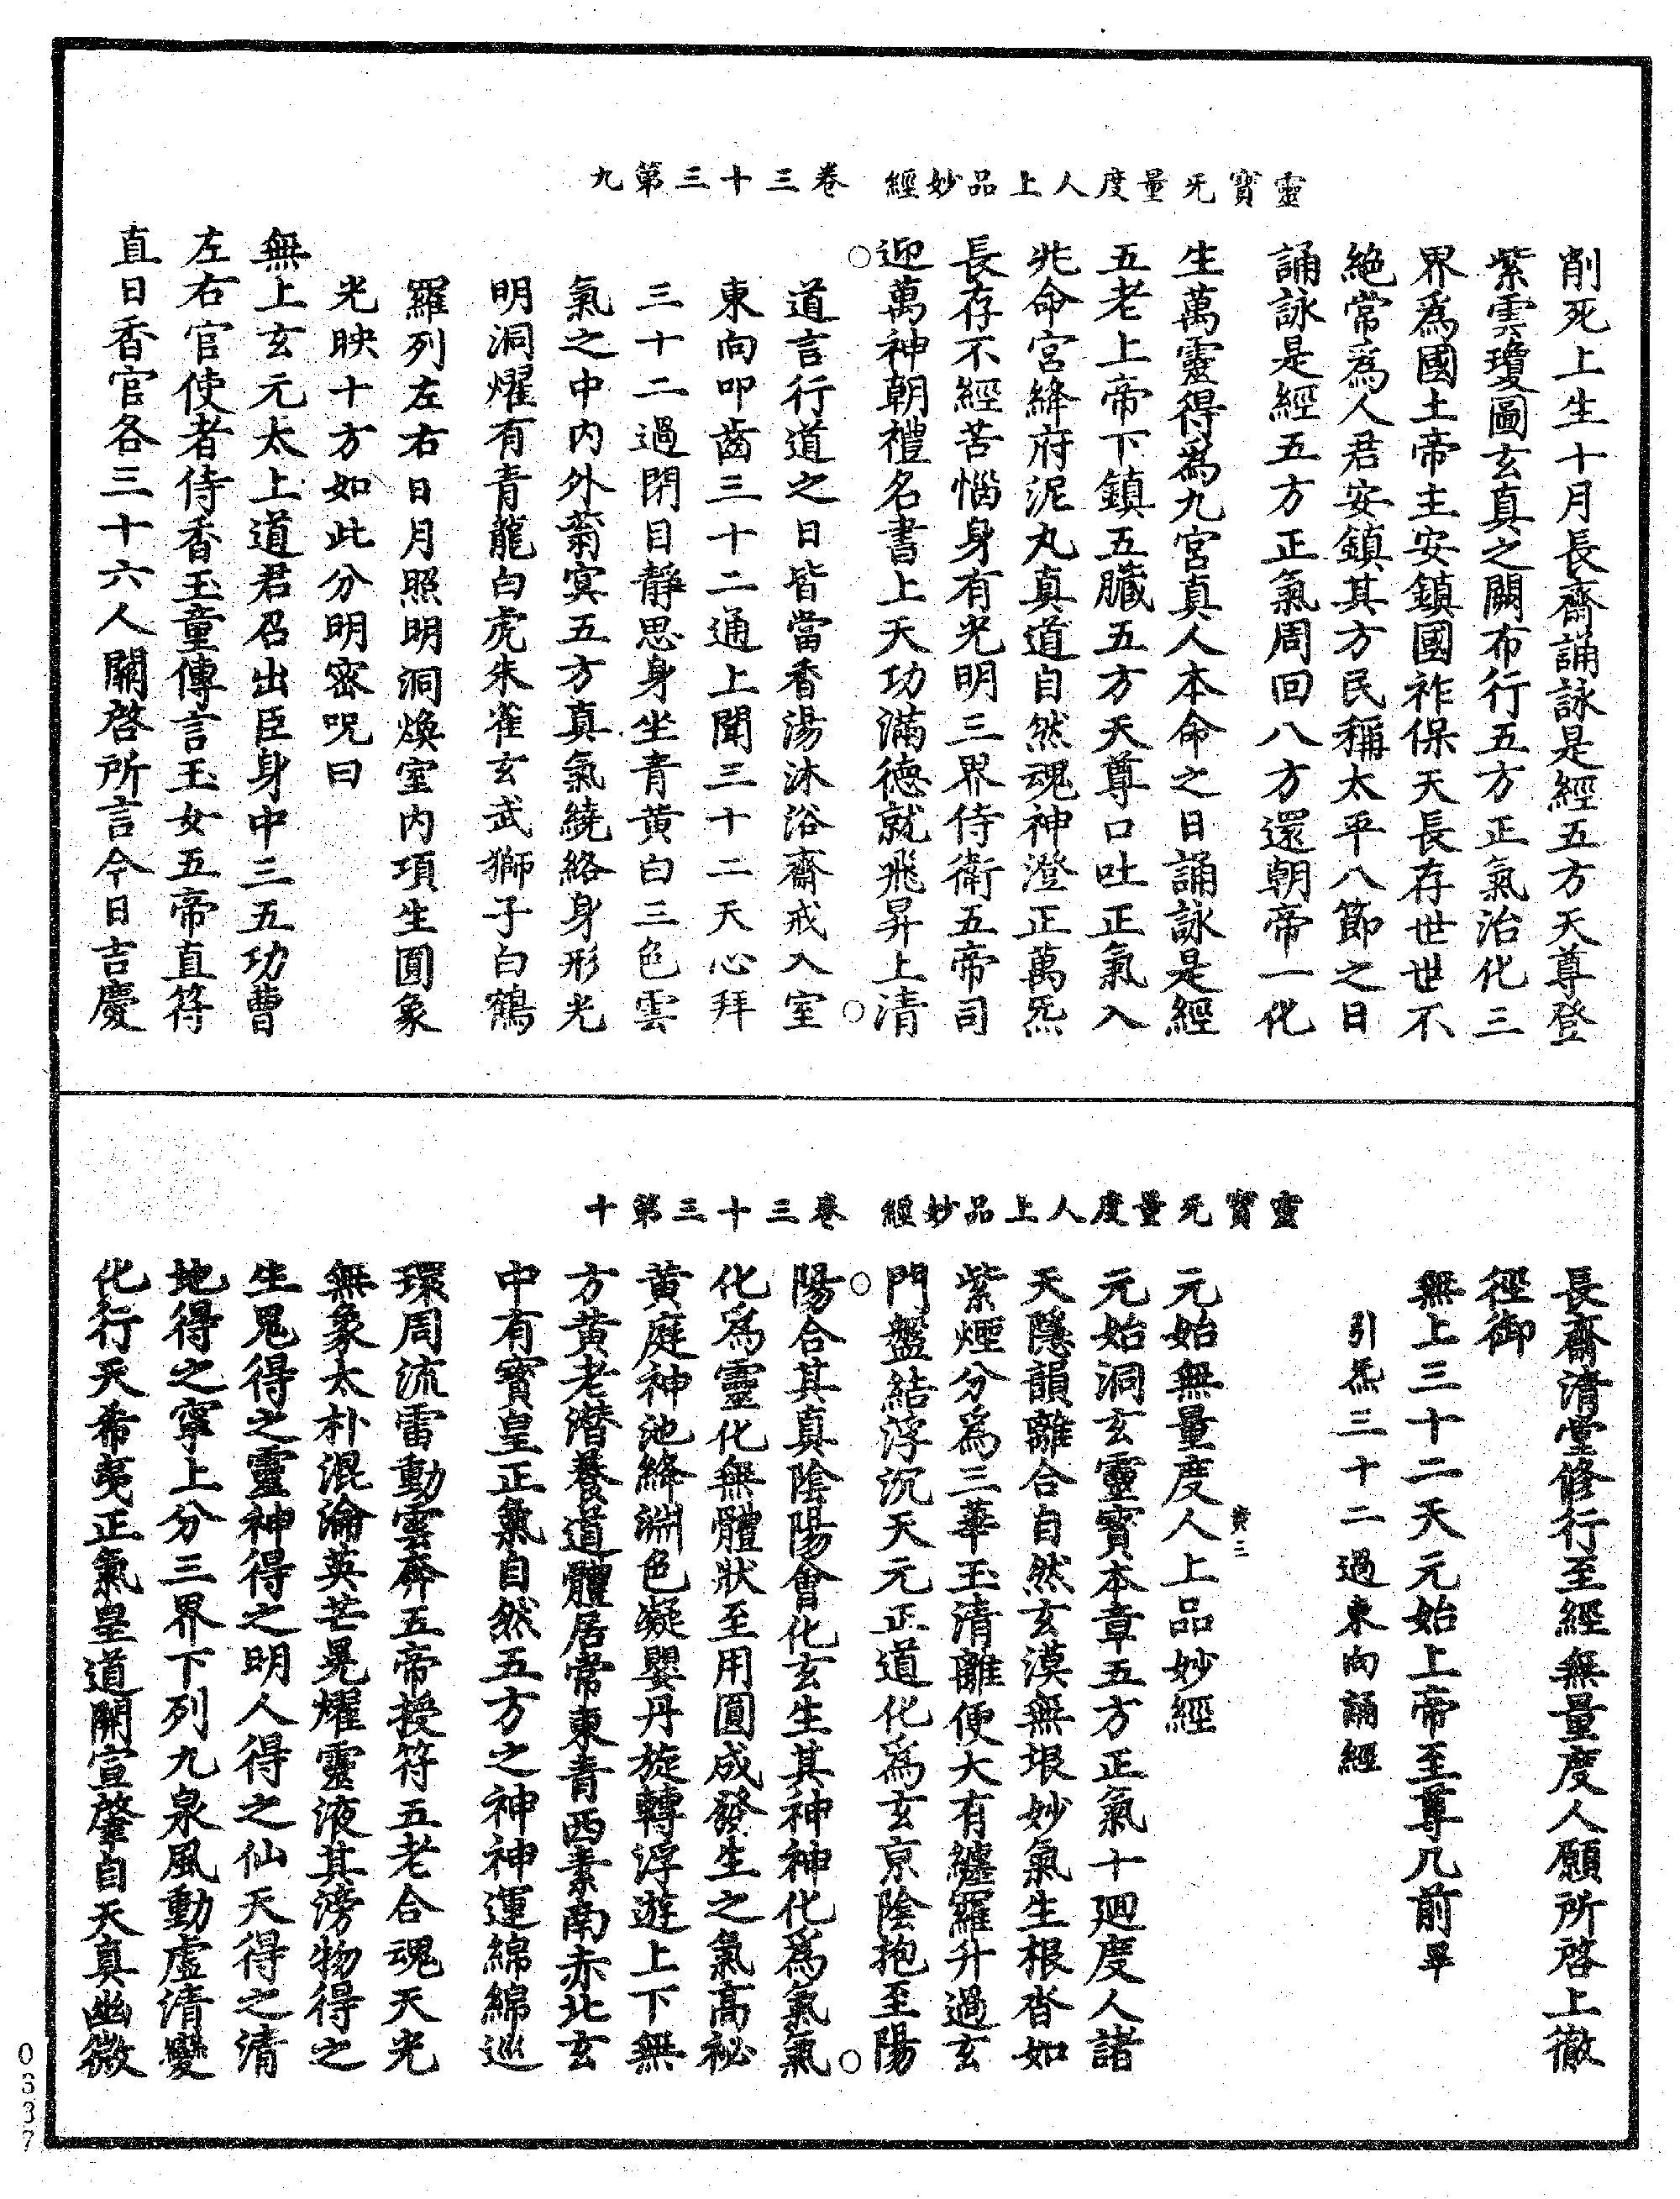 靈寶无量度人上品妙經　卷三十三第九
削死上生十月長齋誦詠是經五方天尊登
紫雲瓊圖玄真之闕布行五方正氣治化三
界爲國土帝主安鎮國祚保天長存世世不
絕常爲人君安鎮其方民稱太平八節之日
誦詠是經五方正氣周回八方還朝帝一化
生萬靈得爲九宮真人本命之日誦詠是經
五老上帝下鎮五臟五方天尊口吐正氣入
兆命宮絳府泥丸真道自然魂神澄正萬炁
長存不經苦惱身有光明三界侍衛五帝司
迎萬神朝禮名書上天功滿德就飛昇上清
道言行道之日皆當香湯沐浴齋戒入室
東向叩齒三十二通上聞三十二天心拜
三十二過閉目靜思身坐青黃白三色雲
氣之中內外蓊冥五方真氣繞絡身形光
明洞燿有青龍白虎朱雀玄武獅子白鶴
羅列左右日月照明洞煥室內項生圓象
光映十方如此分明密呪曰
無上玄元太上道君召出臣身中三五功曹
左右官使者侍香玉童傳言玉女五帝直符
直日香官各三十六人關啓所言今日吉慶
靈寶无量度人上品妙經　卷三十三第十
長齋清堂修行至經無量度人願所啓上徹
徑御
無上三十二天元始上帝至尊几前畢
引炁三十二過東向誦經
元始無量度人上品妙經
元始洞玄靈寶本章五方正氣十廻度人諸
天隱韻離合自然玄漠無垠妙氣生根沓如
紫煙分爲三華玉清離便大有纏羅升過玄
門盤結浮沉天元正道化爲玄京陰抱至陽
陽合其真陰陽會化玄生其神神化爲氣氣
化爲靈化無體狀至用圓成發生之氣高祕
黃庭神池絳淵色凝嬰丹旋轉浮遊上下無
方黃老潛養道體居常東青西素南赤北玄
中有寶皇正氣自然五方之神神運綿綿巡
環周流雷動雲奔五帝授符五老合魂天光
無象太朴混淪英芒晃燿靈液其滂物得之
生鬼得之靈神得之明人得之仙天得之清
地得之寧上分三界下列九泉風動虛清變
化行天希夷正氣皇道開宣肇自天真幽微
0337